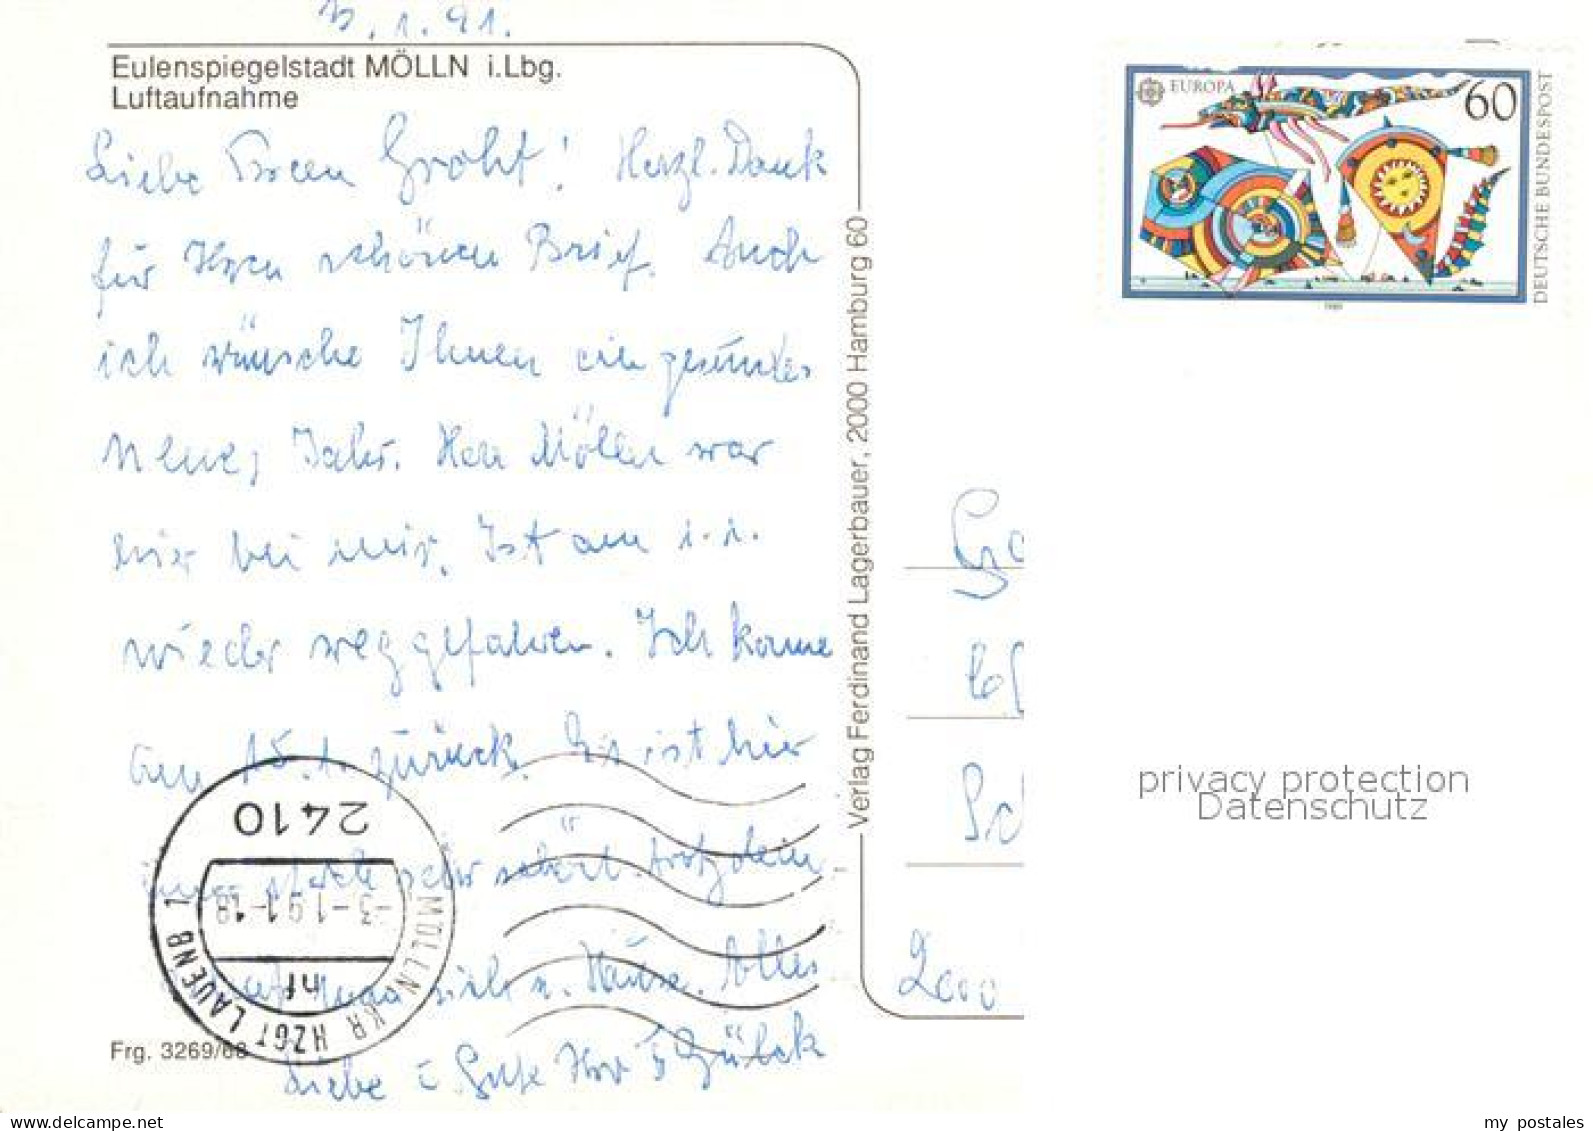 3.1.91.
Eulenspiegelstadt MÖLLN i.Lbg.
Luftaufnahme
Liebe Groht! Herzl. Dank
für Ihren schönen Brief. Auch
ich wünsche Ihnen ein gesundes
neues Jahr. Herr Möller war
hier bei mir. Ist am 1.1.
wieder weggefahren. Ich komme
am 15.1. zurück. Es ist hier
sehr schön. trotzdem
man sich n. Hause. Alles
Liebe u. Gute Ihr
Frg. 3269/68
Verlag Ferdinand Lagerbauer, 2000 Hamburg 60
2410
-3-1.91-18
MÖLLN, KR HZGT LAUENB 1
hf
EUROPA
60
DEUTSCHE BUNDESPOST
Sch
2000
privacy protection
Datenschutz
www.delcampe.net
my postales